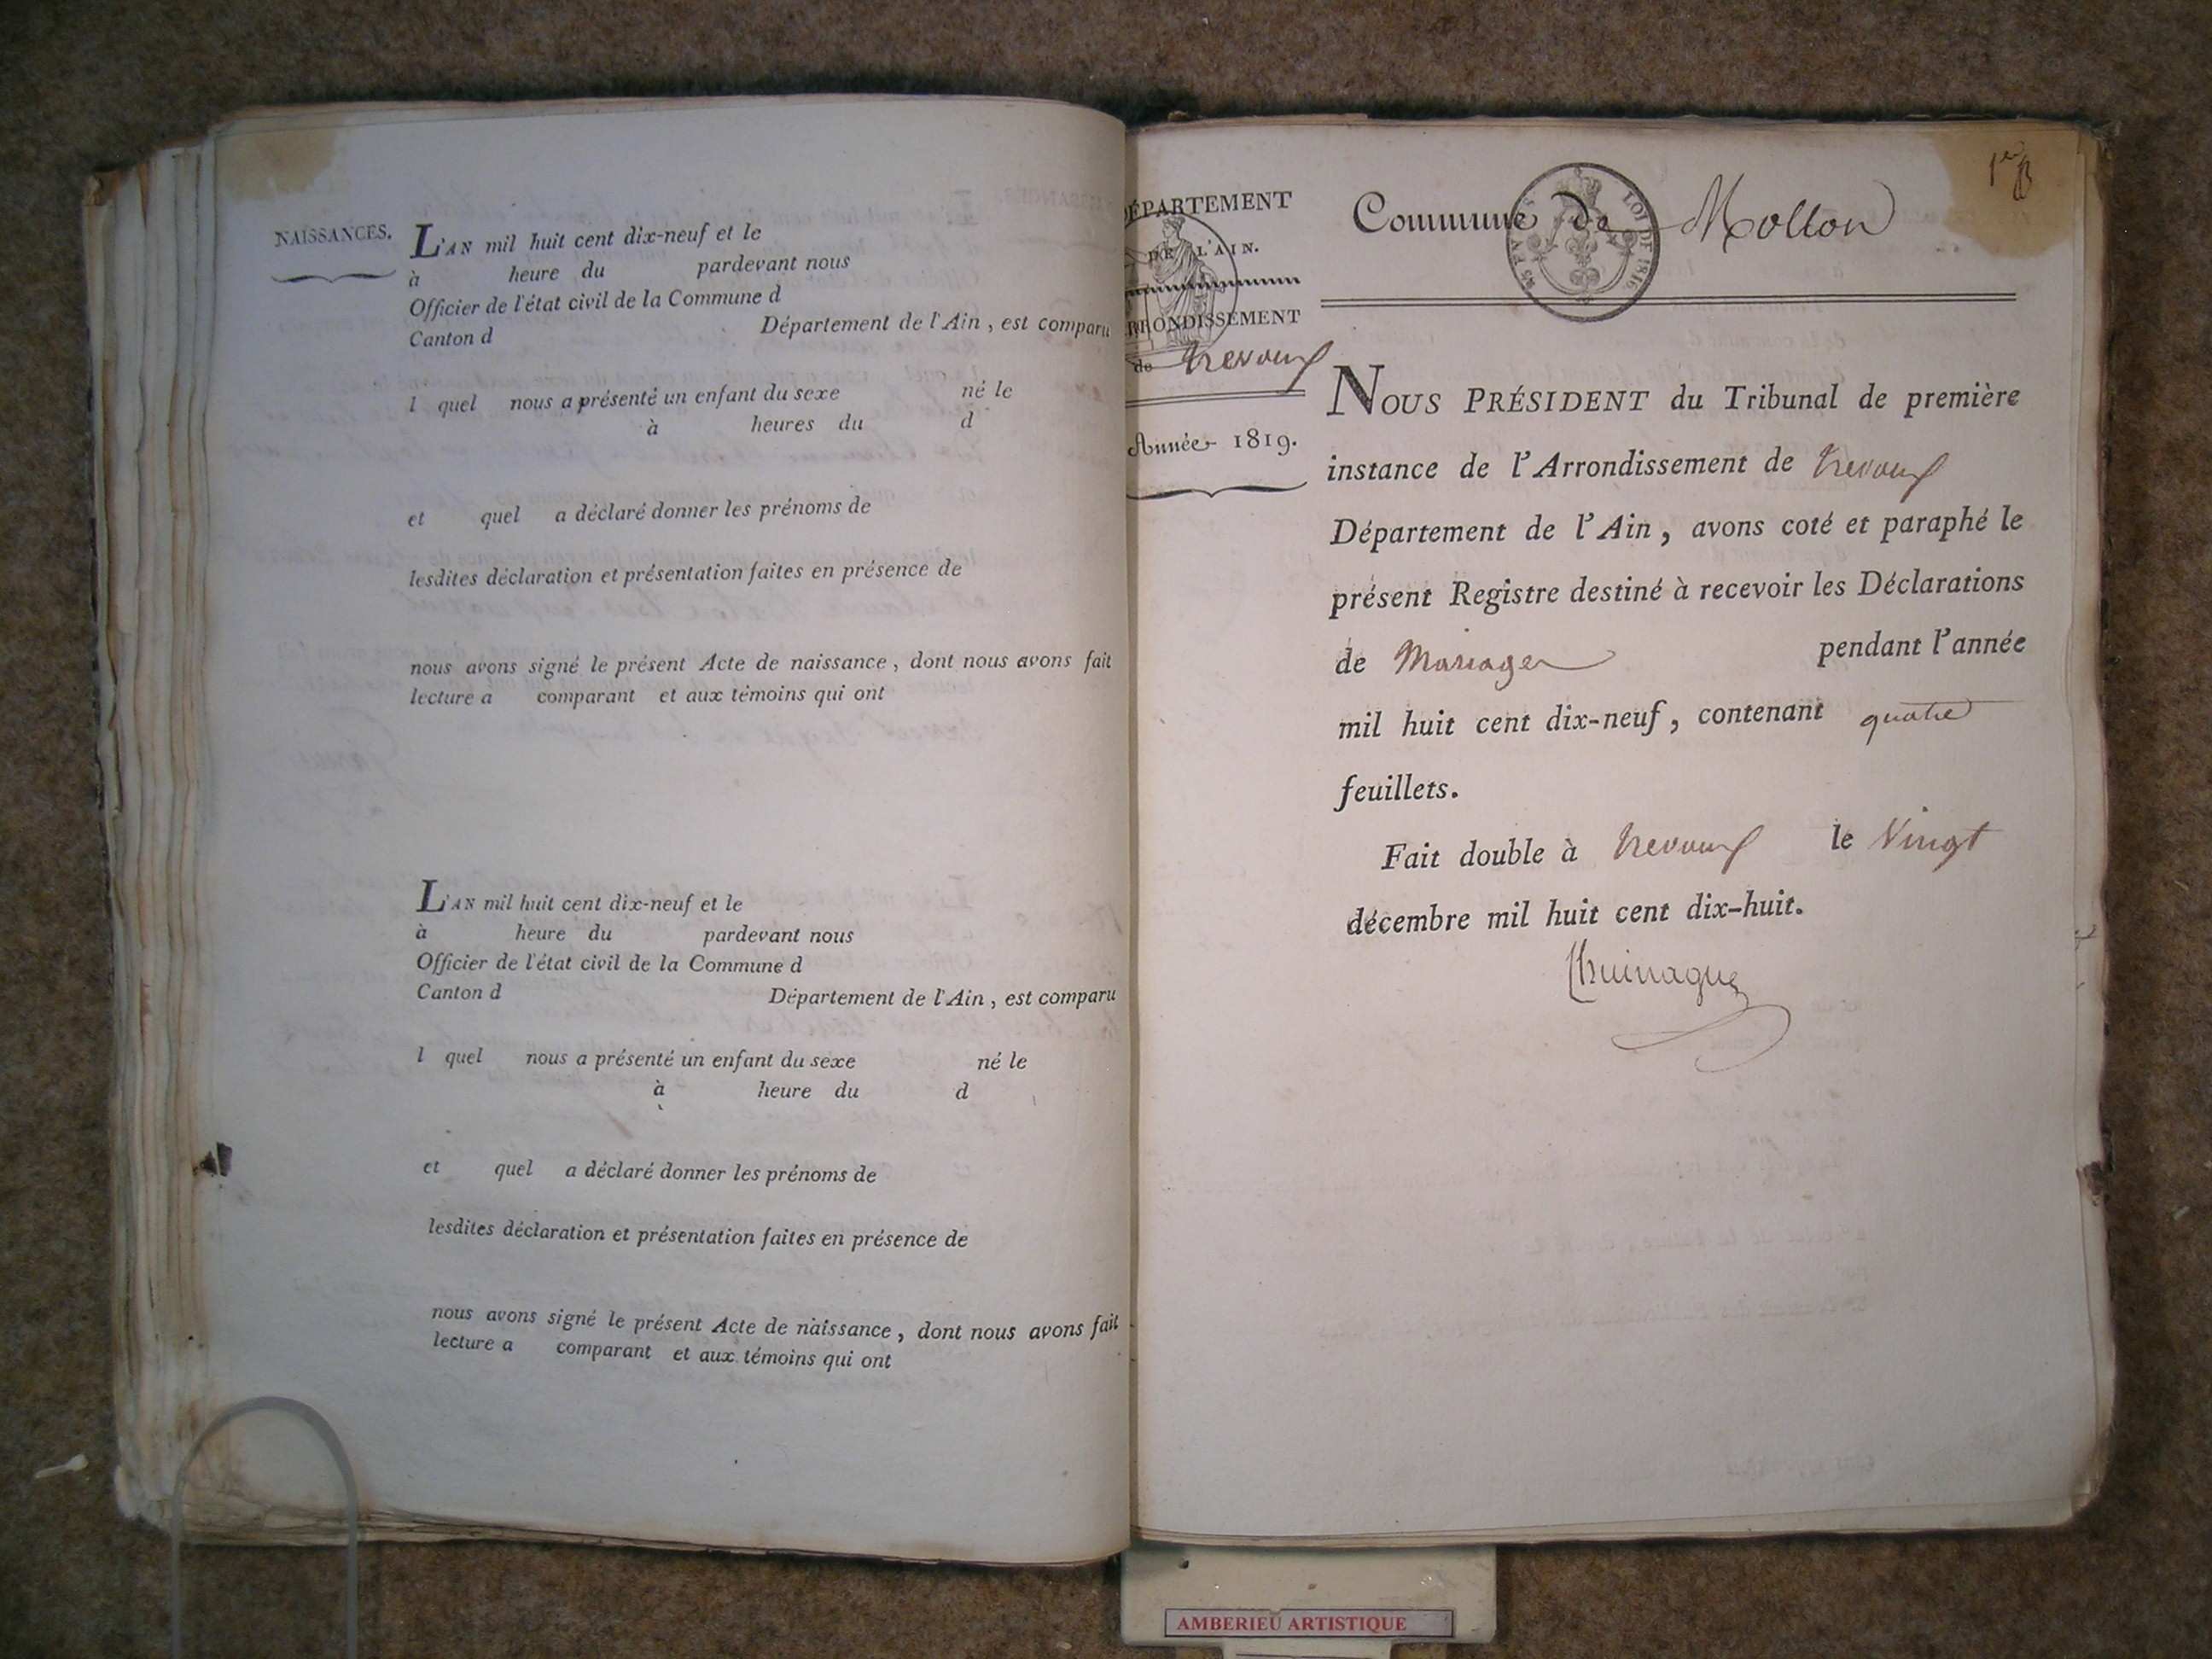 NAISSANCES.
L'AN mil huit cent dix-neuf et le
à heure du pardevant nous
Officier de l'état civil de la Commune d
Canton d Département de l'Ain, est comparu
l quel nous a présenté un enfant du sexe né le
à heures du d
et quel a déclaré donner les prénoms de
lesdites déclaration et présentation faites en présence de
nous avons signé le présent Acte de naissance, dont nous avons fait
lecture a comparant et aux témoins qui ont
L'AN mil huit cent dix-neuf et le
à heure du pardevant nous
Officier de l'état civil de la Commune d
Canton d Département de l'Ain, est comparu
l quel nous a présenté un enfant du sexe né le
à heure du d
et quel a déclaré donner les prénoms de
lesdites déclaration et présentation faites en présence de
nous avons signé le présent Acte de naissance, dont nous avons fait
lecture a comparant et aux témoins qui ont
DÉPARTEMENT
DE L'AIN.
ARRONDISSEMENT
de Trevoux
Année 1819.
1er
Commune de Mollon
LOI DE 1816
NOUS PRÉSIDENT du Tribunal de première
instance de l'Arrondissement de Trevoux
Département de l'Ain, avons coté et paraphé le
présent Registre destiné à recevoir les Déclarations
de Mariages pendant l'année
mil huit cent dix-neuf, contenant quatre
feuillets.
Fait double à Trevoux le Vingt
décembre mil huit cent dix-huit.
AMBERIEU ARTISTIQUE